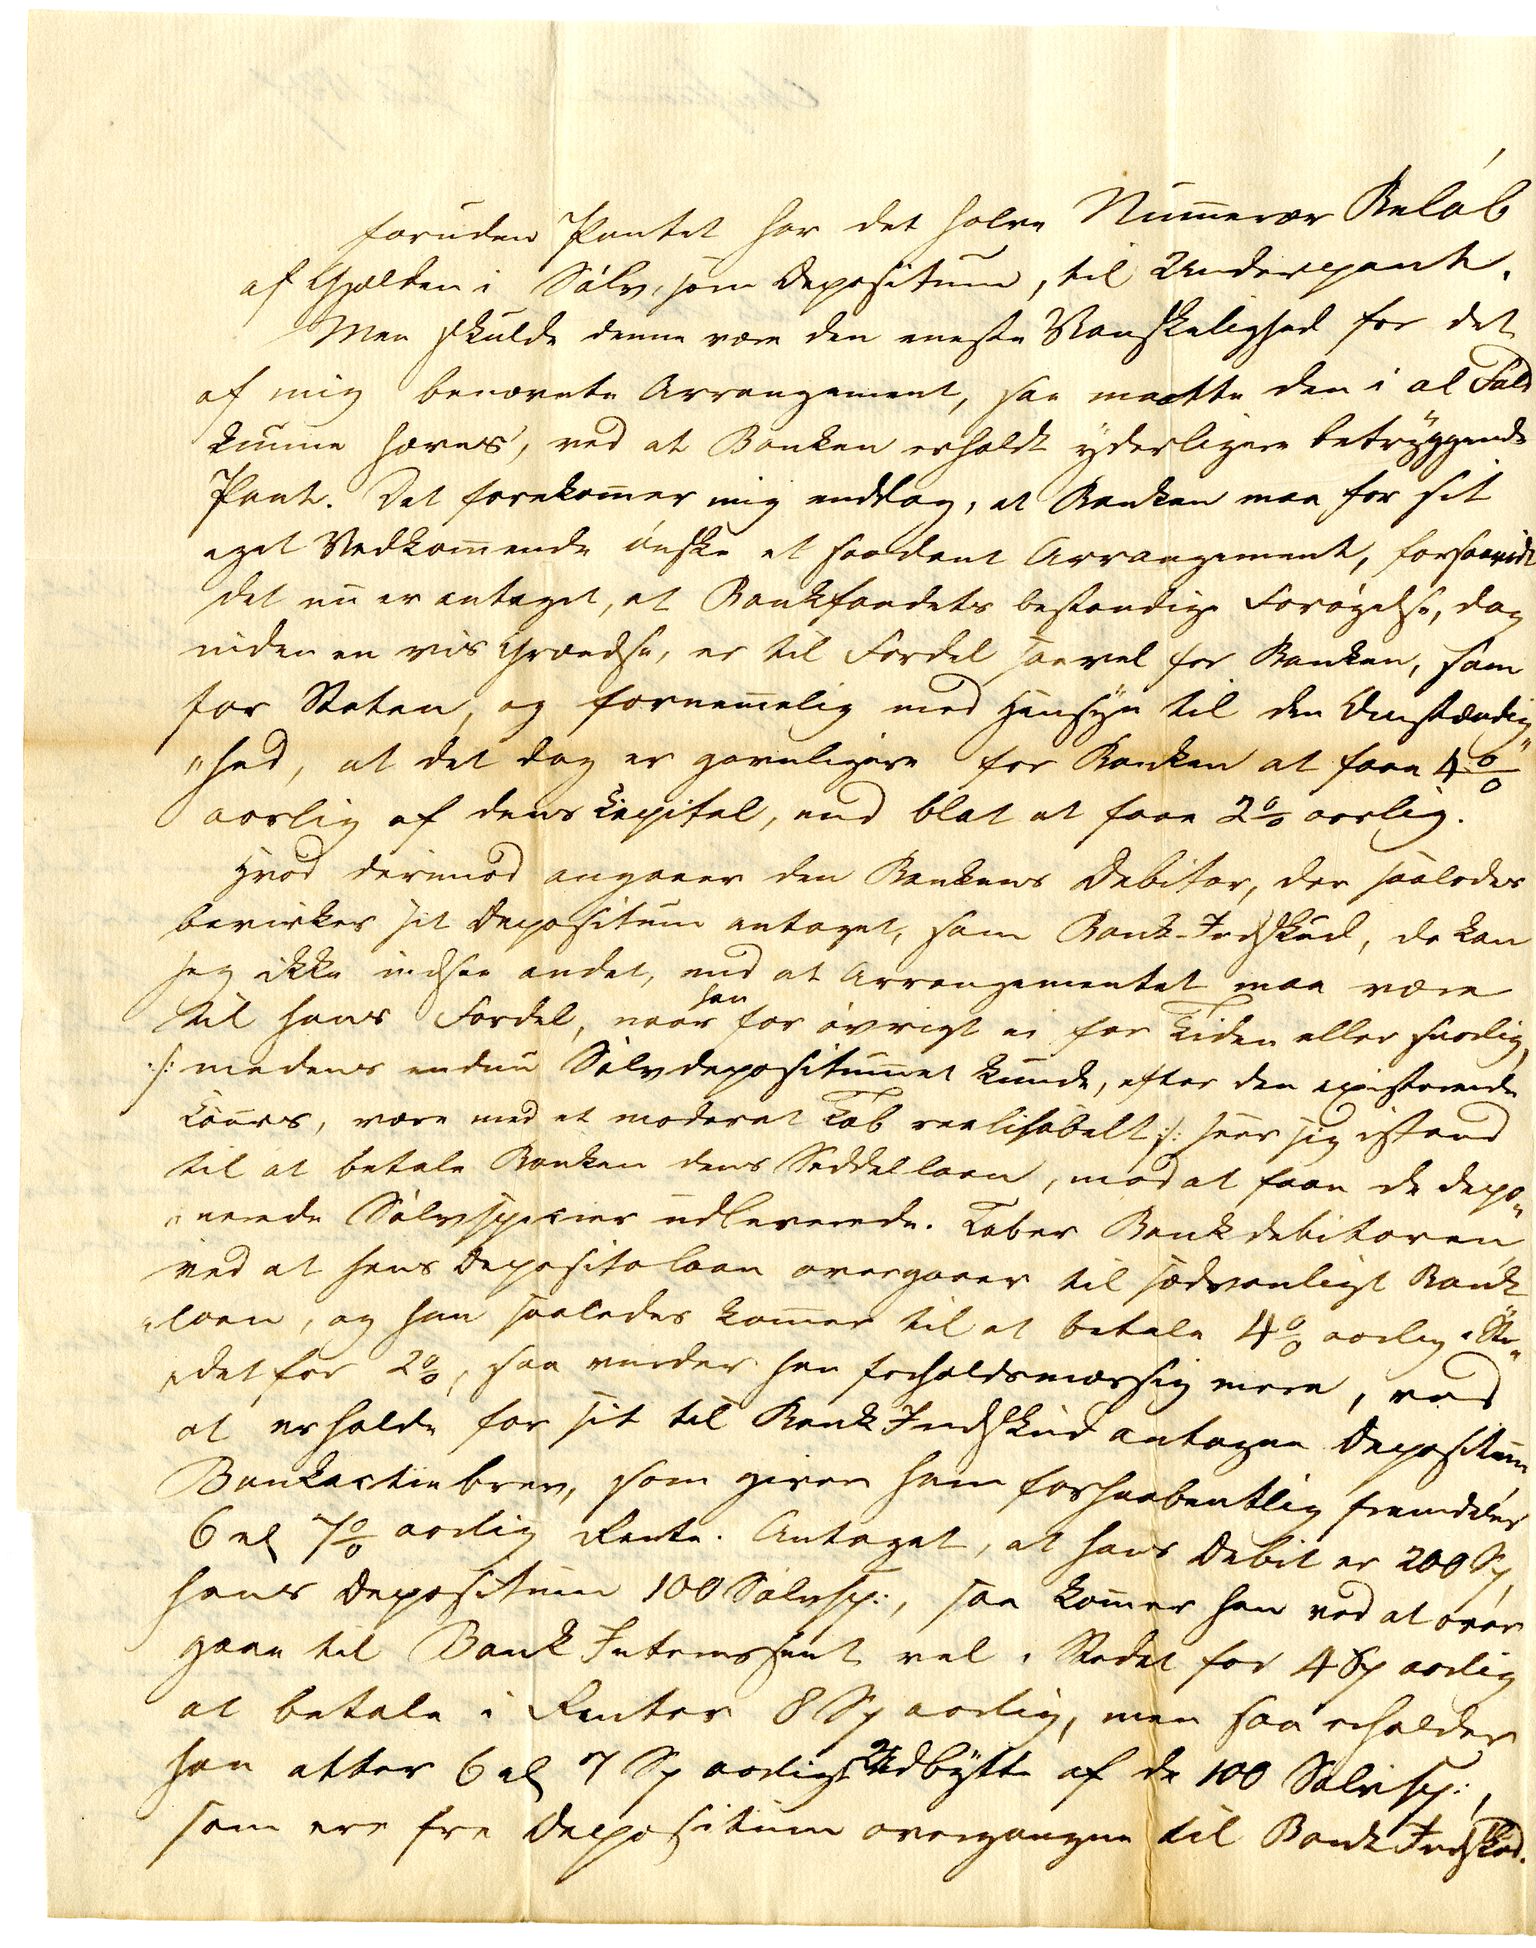 foruden Pantet har det halve Numerær Beløb
af Gjælden i Sølv, som Depositum, til Underpant.
Men skulde denne være den eneste Vanskelighed for det
af mig benævnte Arrangement, saa maatte den i al Fald
kunne hæves, ved at Banken erholdt yderligere betryggende
Pant. Det forekommer mig endog, at Banken maa for sit
eget Vedkommende ønske et saadant Arrangement, forsaavidt
det nu er antaget, at Bankfondets bestandige Forøgelse, dog
inden en vis Grændse, er til Fordel saavel for Banken, som
for Staten, og fornemmelig med Hensyn til den Omstændig„
„hed, at det dog er gavnligere for Banken at faae 4 %
aarlig af dens Kapital, end blot at faae 2 % aarlig.
Hvad derimod angaaer den Bankens Debitor, der saaledes
bevirker sit Depositum antaget, som Bank-Indskud, da kan
jeg ikke indsee andet, end at Arrangementet maa være
til hans Fordel, naar han for øvrigt ei for Tiden eller snarlig,
:/: medens endnu Sølvdepositummet kunde, efter den existerende
Cours, være med et moderat Tab realisabelt :/: seer sig istand
til at betale Banken dens Seddellaan, mod at faae de depo„
„nerede Sølvspecier udleverede. Taber Bankdebitoren
ved at hans Depositolaan overgaaer til sædvanligt Bank
„laan, og han saaledes kommer til at betale 4 % aarlig i Ste„
„det for 2 %, saa vinder han forholdsmæssig mere, ved
at erholde for sit til Bank Indskud antagne Depositum
Bankactiebrev, som giver ham forhaabentlig fremdeles
6 el 7 % aarlig Rente. Antaget, at hans Debit er 200 Sp,
hans Depositum 100 Sølvsp:, saa kommer han ved at over
gaae til Bank Interessent vel i Stedet for 4 Sp aarlig
at betale i Renter 8 Sp aarlig, men saa erholder
han atter 6 el 7 Sp aarligt Udbytte af de 100 Sølvsp:,
som ere fra Depositum overgangne til Bank Indskud.